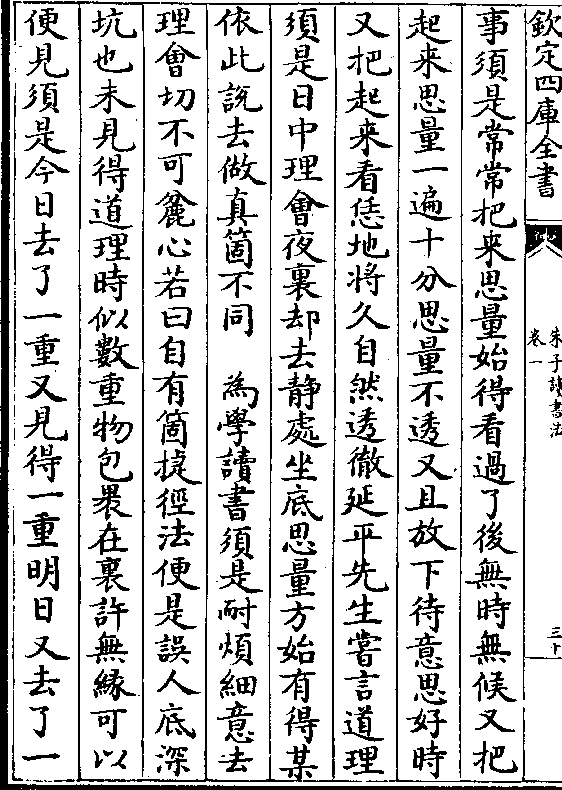 欽定四庫全書
朱子讀書法
卷一
三十
事須是常常把来思量始得看過了後無時無候又把
起来思量一遍十分思量不透又且放下待意思好時
又把起来看恁地将久自然透徹延平先生嘗言道理
須是日中理會夜裏却去静處坐底思量方始有得某
依此說去做真箇不同　為學讀書須是耐煩細意去
理會切不可麄心若曰自有箇捷徑法便是誤人底深
坑也未見得道理時似數重物包褁在裏許無緣可以
便見須是今日去了一重又見得一重明日又去了一